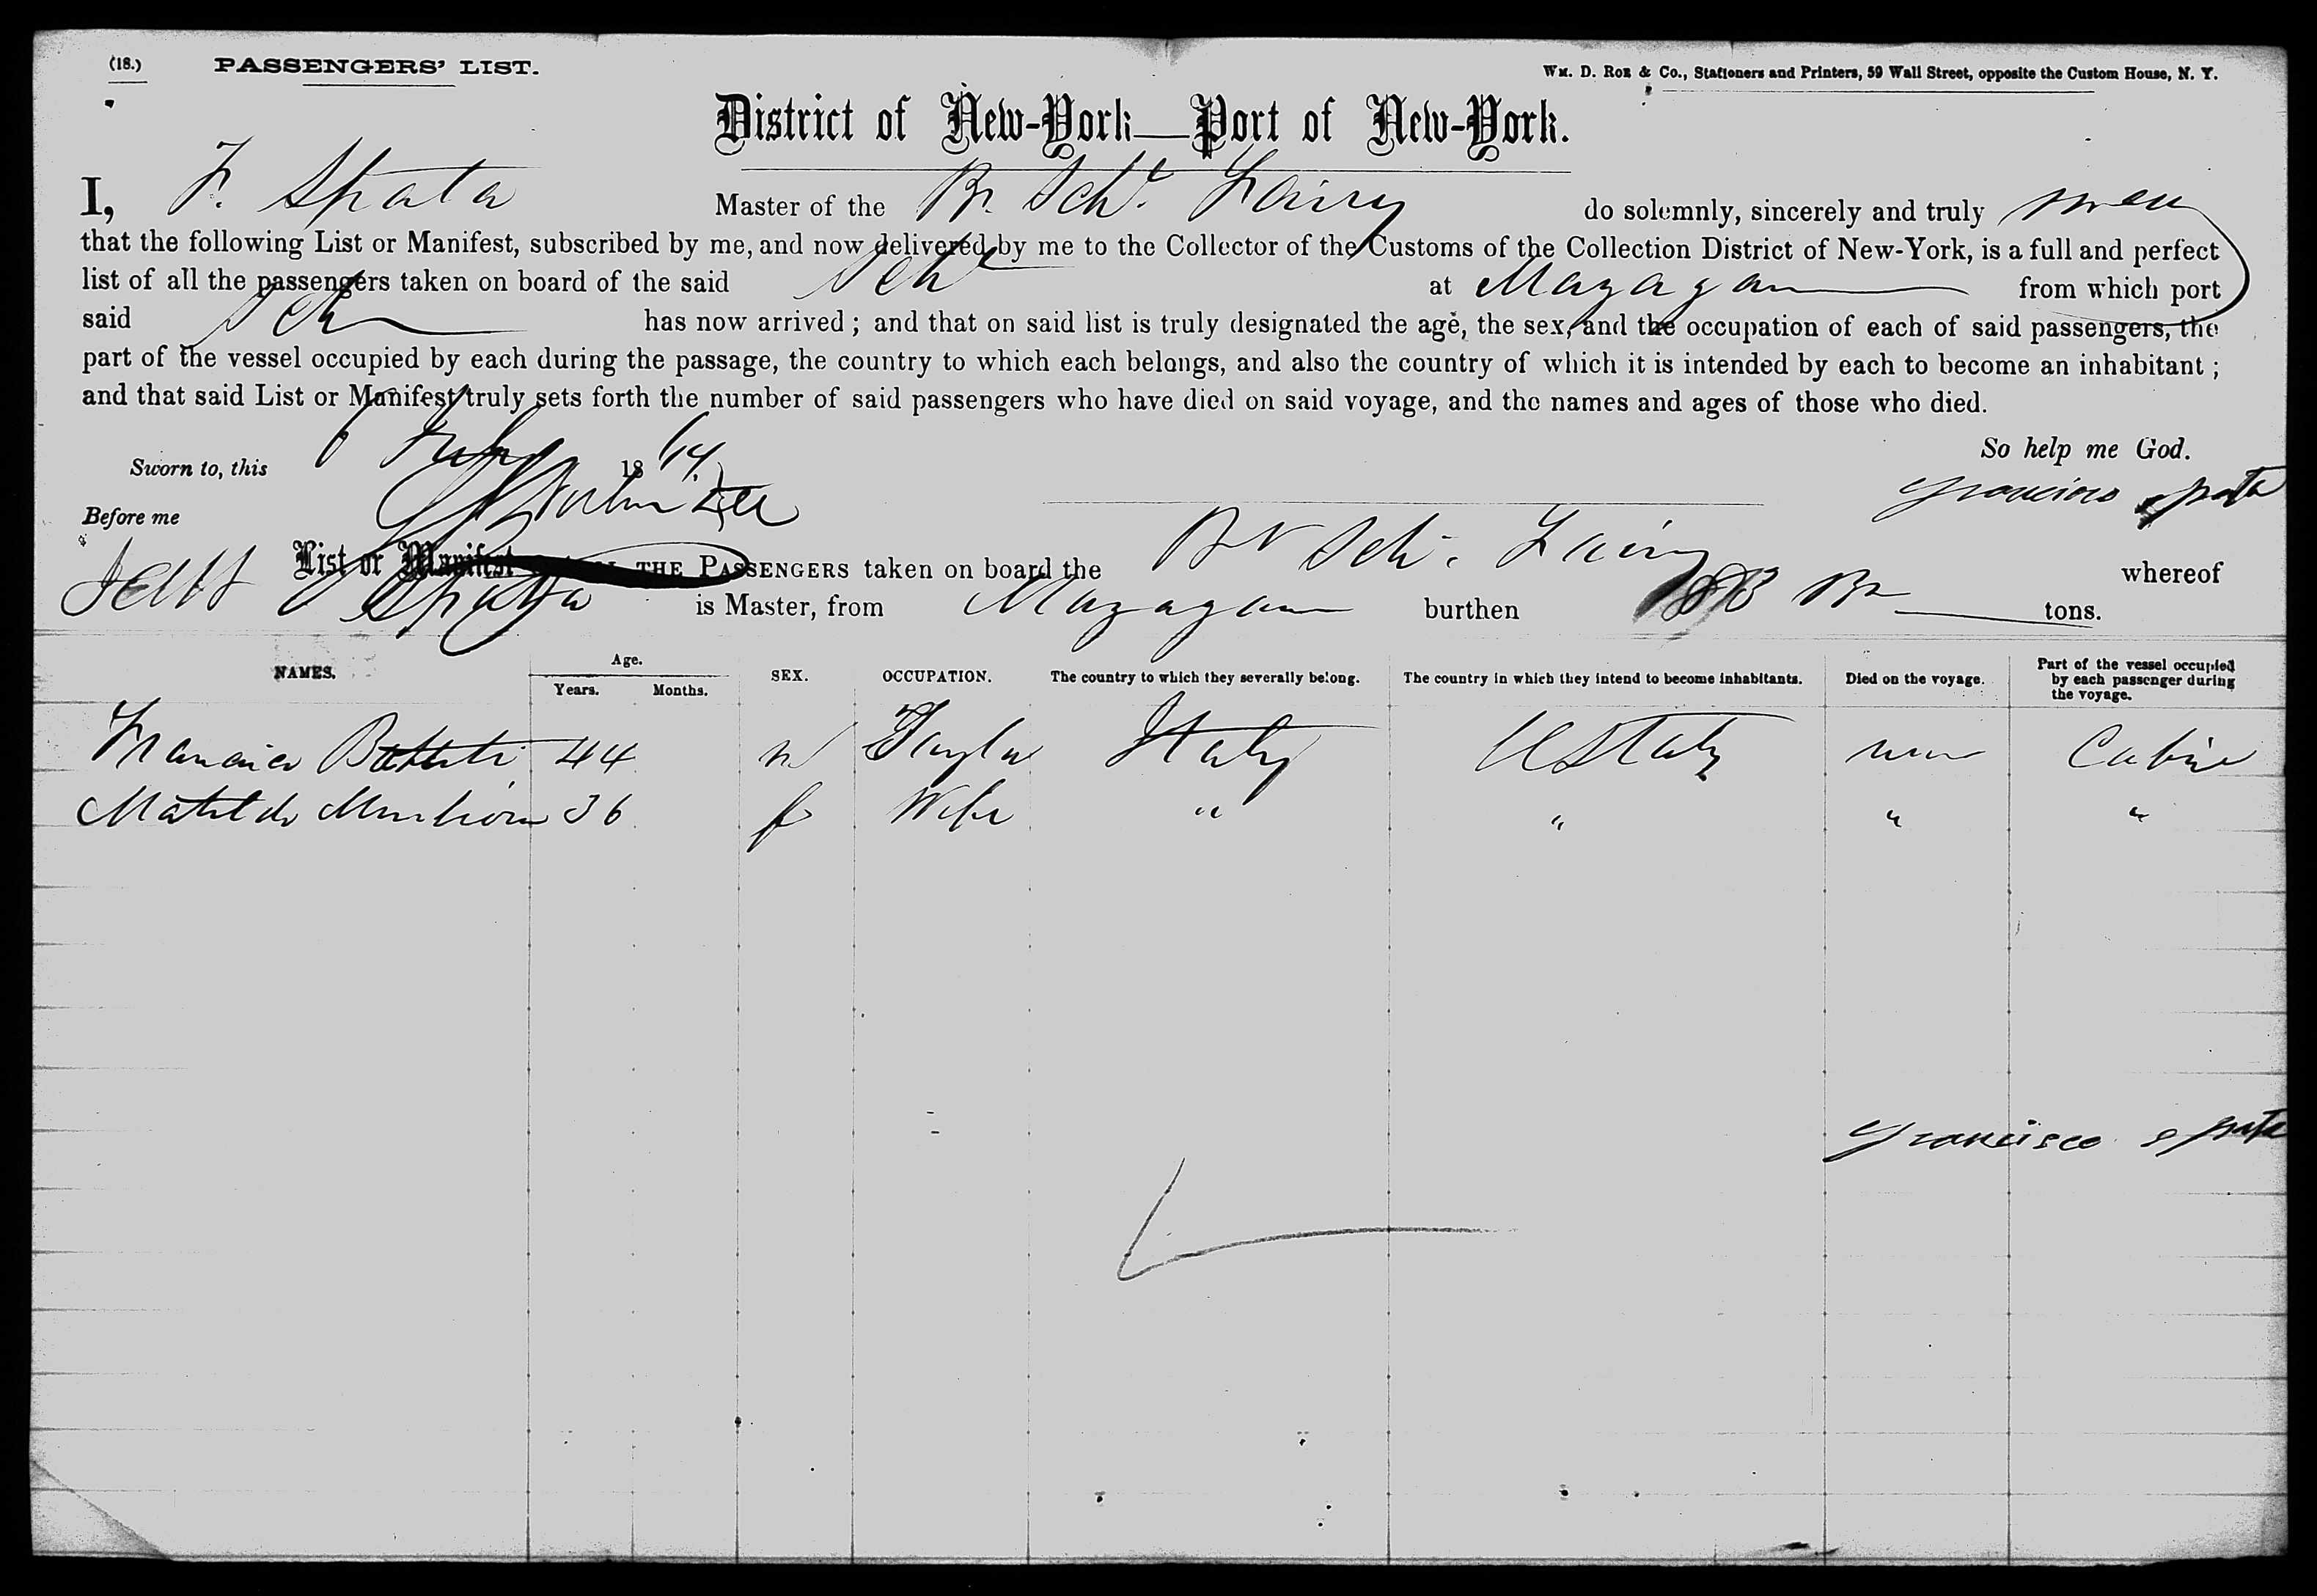 (18.) PASSENGERS' LIST. Wm. D. Roe & Co., Stationers and Printers, 59 Wall Street, opposite the Custom House, N. Y.
District of New-York—Port of New-York.
I, F. Spata Master of the Br. Schr. Fairy do solemnly, sincerely and truly swear
that the following List or Manifest, subscribed by me, and now delivered by me to the Collector of the Customs of the Collection District of New-York, is a full and perfect
list of all the passengers taken on board of the said Schr at Mazagan from which port
said Schr has now arrived; and that on said list is truly designated the age, the sex, and the occupation of each of said passengers, the
part of the vessel occupied by each during the passage, the country to which each belongs, and also the country of which it is intended by each to become an inhabitant;
and that said List or Manifest truly sets forth the number of said passengers who have died on said voyage, and the names and ages of those who died.
So help me God.
Sworn to, this 6 July 1864.
Francisco Spata
Before me
List or Manifest OF ALL THE PASSENGERS taken on board the Br Schr. Fairy whereof
Spata is Master, from Mazagan burthen tons.
NAMES. Age. Years. Months. SEX. OCCUPATION. The country to which they severally belong. The country in which they intend to become inhabitants. Died on the voyage. Part of the vessel occupied by each passenger during the voyage.
44 m Italy U States none Cabin
Matilda 36 f Wife " " " "
Francisco Spata